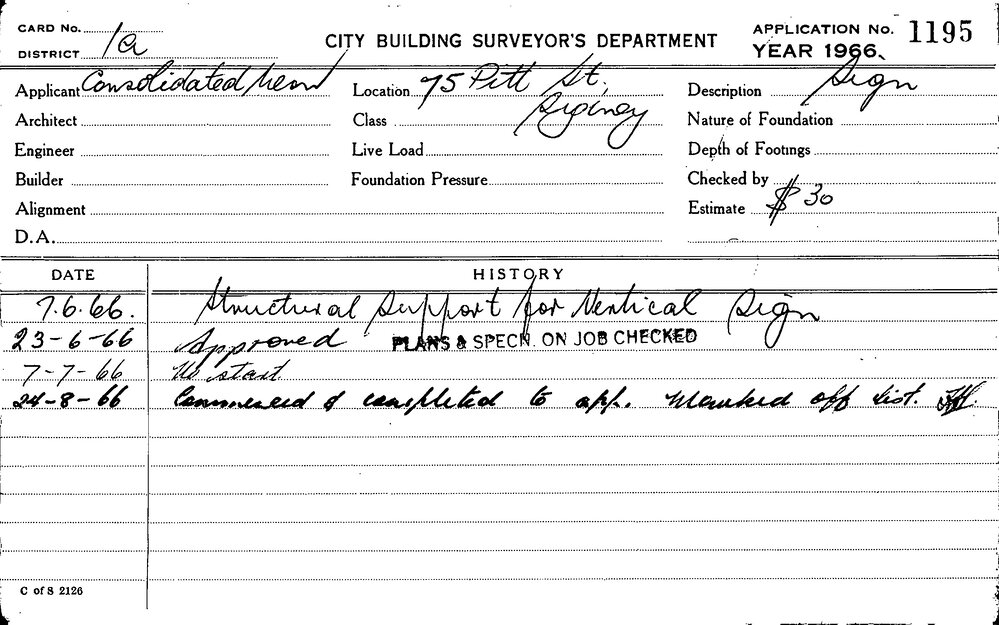 CARD No. CITY BUILDING SURVEYOR'S DEPARTMENT APPLICATION No. 1195
DISTRICT 1a YEAR 1966.
Applicant Consolidated Location 75 Pitt St, Description Sign
Architect Class Sydney Nature of Foundation
Engineer Live Load Depth of Footings
Builder Foundation Pressure Checked by
Alignment Estimate $30
D.A.
DATE HISTORY
7.6.66. Structural Support for Vertical Sign
23-6-66 Approved PLANS & SPECN. ON JOB CHECKED
7-7-66 No start
24-8-66 Commenced & completed to app. Marked off list.
C of S 2126